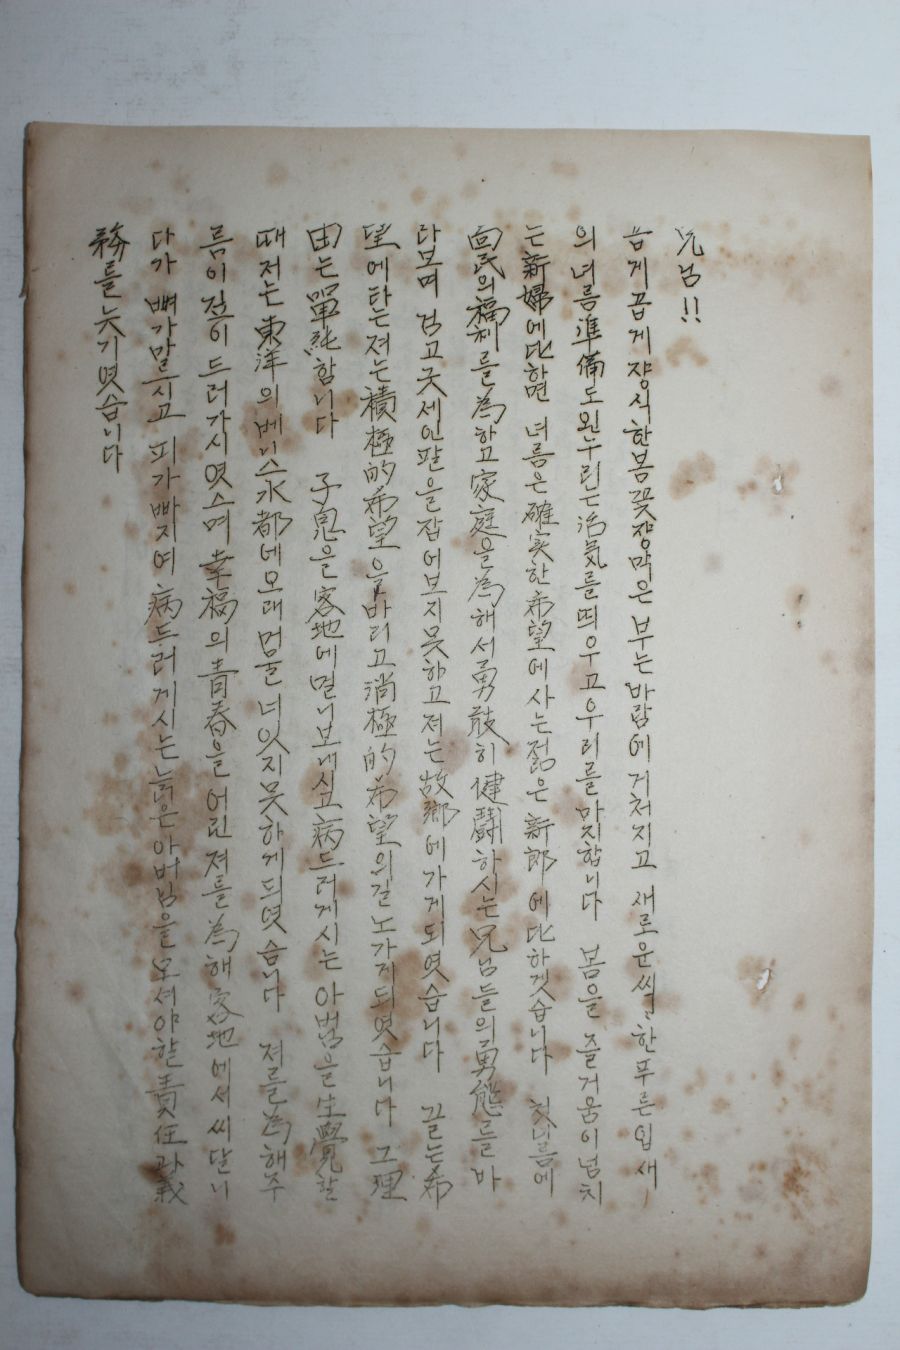 兄님!!
곱게 곱게 쟝식한 봄 꽃쟝막은 부는 바람에 거처지고 새로운 씩씩한 푸른 입새
의 녀름 準備도 왼누리는 活氣를 띄우고 우리를 마지합니다 봄을 즐거움이 넘치
는 新婦에 比하면 녀름은 確実한 希望에 사는 젊은 新郎에 比하겟습니다 첫녀름에
向民의 福利를 為하고 家庭을 為해서 勇敢히 健鬪하시는 兄님들의 勇態를 바
라보며 검고 굿세인 팔을 잡어보지 못하고 져는 故鄕에 가게 되엿습니다 끌는 希
望에 타는 져는 積極的 希望을 바리고 消極的 希望의 길노 가게 되엿습니다 그 理
由는 單純합니다 子息을 客地에 멀니 보내시고 病드러 게시는 아범을 生覺할
때 저는 東洋의 베니스 水都에 오래 머물너 잇지 못하게 되엿습니다 져를 為해 주
름이 젼이 드러가시엿스며 幸福의 靑春을 어린 져를 為해 客地에서 씨달니
다가 뼈가 말으시고 피가 빠지여 病드러 게시는 늙은 아버님을 모셔야 할 責任과 義
務를 늣기엿습니다